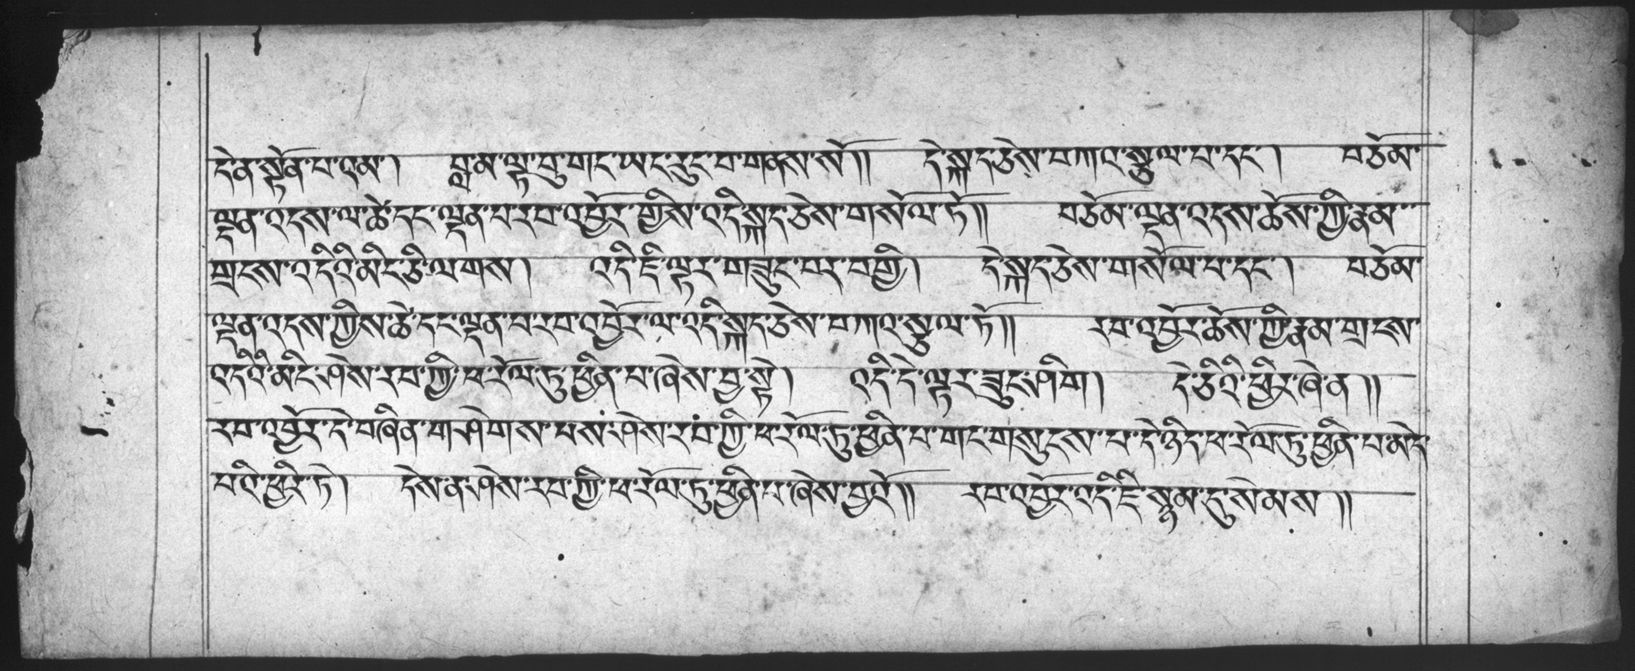 དེན་སྟོན་པ་འམ།  བླ་མ་ལྟ་བུ་གང་ཡང་རུང་བ་གནས་སོ།།  དེ་སྐད་ཅེས་བཀའ་སྩལ་པ་དང་།  བཅོམ་
ལྡན་འདས་ལ་ཚེ་དང་ལྡན་པ་རབ་འབྱོར་གྱིས་འདི་སྐད་ཅེས་གསོལ་ཏོ།།  བཅོམ་ལྡན་འདས་ཆོས་ཀྱི་རྣམ་
གྲངས་འདིའི་མིང་ཅི་ལགས།  འདི་ཇི་ལྟར་གཟུང་བར་བགྱི།  དེ་སྐད་ཅེས་གསོལ་པ་དང་།  བཅོམ་
ལྡན་འདས་ཀྱིས་ཚེ་དང་ལྡན་པ་རབ་འབྱོར་ལ་འདི་སྐད་ཅེས་བཀའ་སྩལ་ཏོ།།  རབ་འབྱོར་ཆོས་ཀྱི་རྣམ་གྲངས་
འདིའི་མིང་ཤེས་རབ་ཀྱི་ཕ་རོལ་ཏུ་ཕྱིན་པ་ཞེས་བྱ་སྟེ།  འདི་དེ་ལྟར་ཟུང་ཤིག།  དེ་ཅིའི་ཕྱིར་ཞེ་ན།།
རབ་འབྱོར་དེ་བཞིན་གཤེགས་པས་ཤེས་རབ་ཀྱི་ཕ་རོལ་ཏུ་ཕྱིན་པ་གང་གསུངས་པ་དེ་ཉིད་ཕ་རོལ་ཏུ་ཕྱིན་པ་མེད་
པའི་ཕྱིར་ཏེ།  དེས་ན་ཤེས་རབ་ཀྱི་ཕ་རོལ་ཏུ་ཕྱིན་པ་ཞེས་བྱའོ།།  རབ་འབྱོར་འདི་ཇི་སྙམ་དུ་སེམས།།